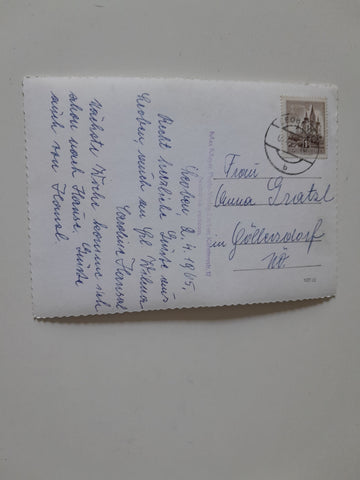 Leoben, 2.4.1965.
Recht herzliche Grüße aus
Leoben, auch an Frl. Wilma
Caroline Hansal
Nächste Woche komme ich
schon nach Hause, Grüße
auch von Hansl
Frau
Anna Gratzl
in Göllersdorf
NÖ.